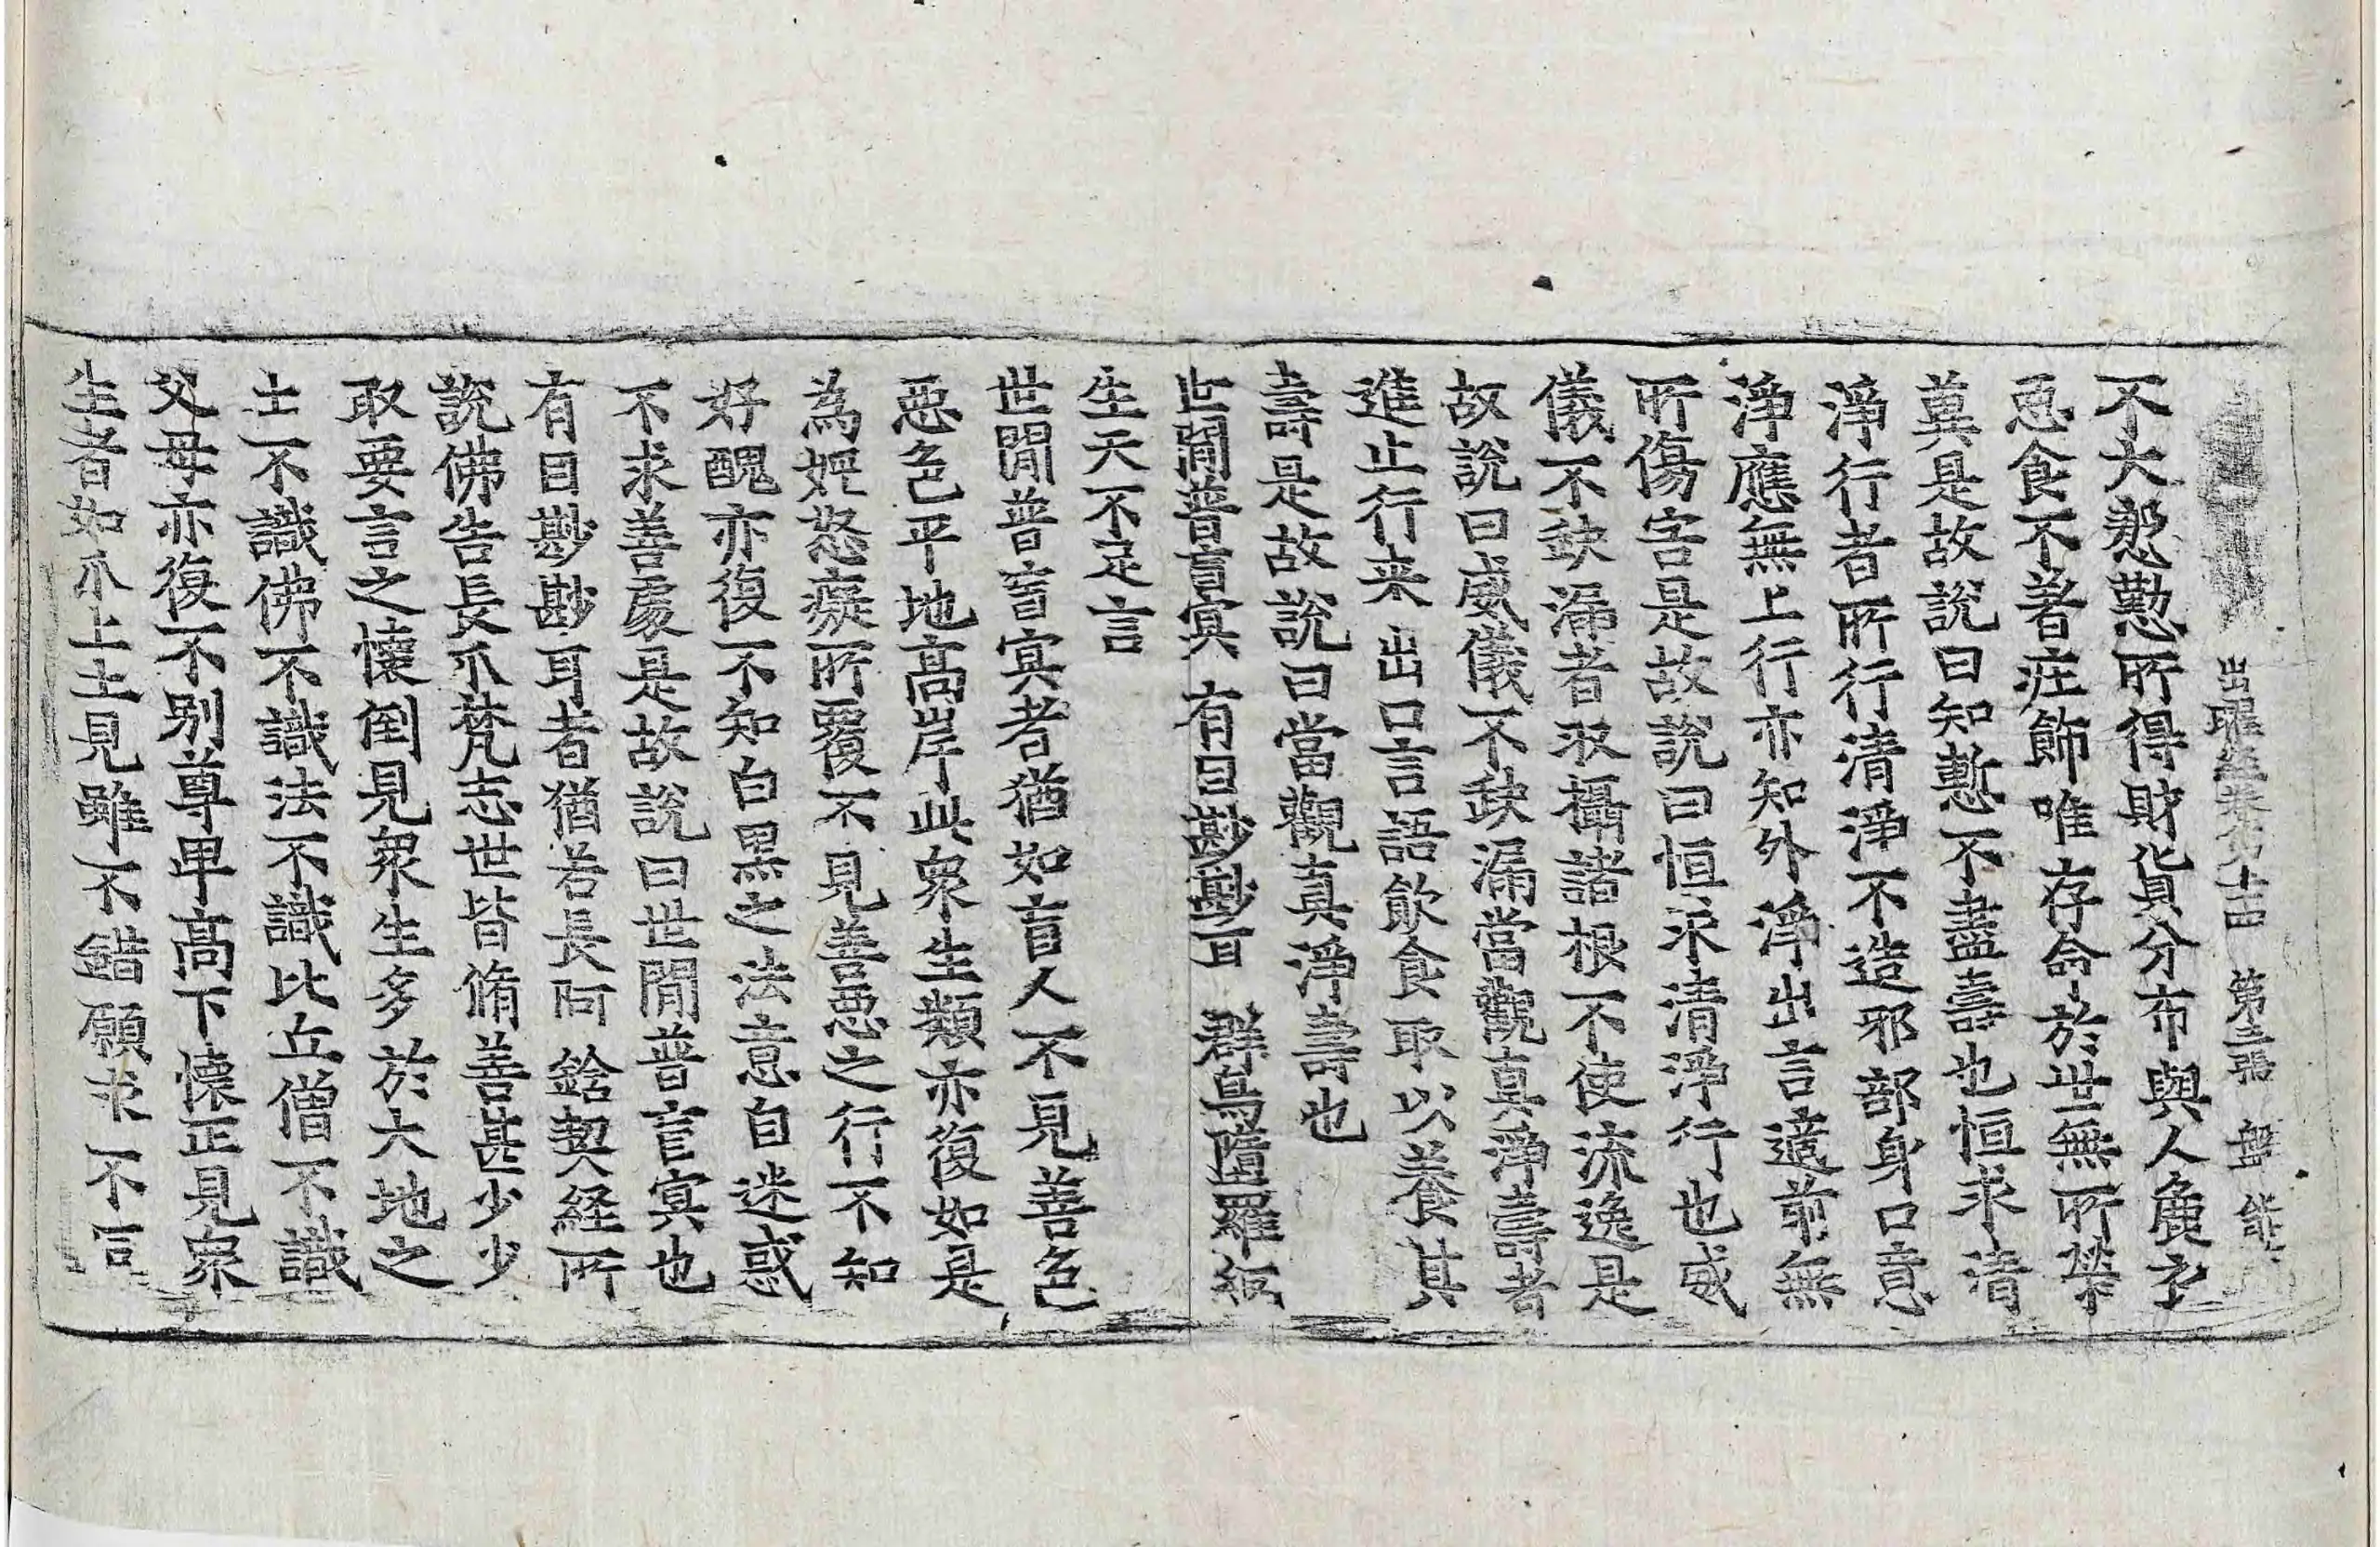 出曜經卷第十四 第三張
不大慇懃所得財貨分布與人麁衣
惡食不著庄飾唯存命於世無所榮
兾是故說曰知慙不盡壽也恒求清
淨行者所行清淨不造邪部身口意
淨應無上行亦知外淨出言適前無
所傷害是故說曰恒求清淨行也威
儀不缺漏者収攝諸根不使流逸是
故說曰威儀不缺漏當觀真淨壽者
進止行来出口言語飲食取以養其
壽是故說曰當觀真淨壽也
世閒普盲冥 有目尠尠耳 群鳥墮羅網
生天不足言
世閒普盲冥者猶如盲人不見善色
惡色平地高岸此衆生類亦復如是
為婬怒癡所覆不見善惡之行不知
好醜亦復不知白黑之法意自迷惑
不求善處是故說曰世閒普盲冥也
有目尠尠耳者猶若長阿鋡契経所
說佛告長爪梵志世皆脩善甚少少
取要言之懷倒見衆生多於大地之
土不識佛不識法不識比丘僧不識
父母亦復不別尊卑高下懷正見衆
生者如爪上土見雖不錯願求不同